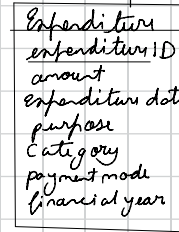 Expenditure
expenditure ID
amount
Expenditure dat
purpose
Category
payment mode
financial year